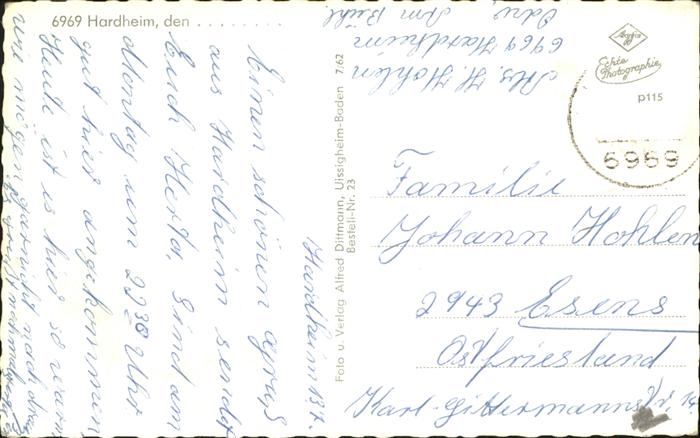 6969 Hardheim, den . . . . . . . .
Hardheim 13.7.
Einen schönen Gruß
aus Hardheim sendet
Euch Herta, Sind am
Montag um 22 30 Uhr
gut hier angekommen
Heute ist es hier so warm
wir mögen garnicht nach
Foto u. Verlag Alfred Dittmann, Uissigheim-Baden 7/62
Bestell-Nr. 23
Abs. H. Hohlen
6969 Hardheim
Odw. Am Bühl
Agfa
Echte
Photographie
P115
6969
Familie
Johann Hohlen
2943 Esens
Ostfriesland
Karl-Gittermannstr. 14